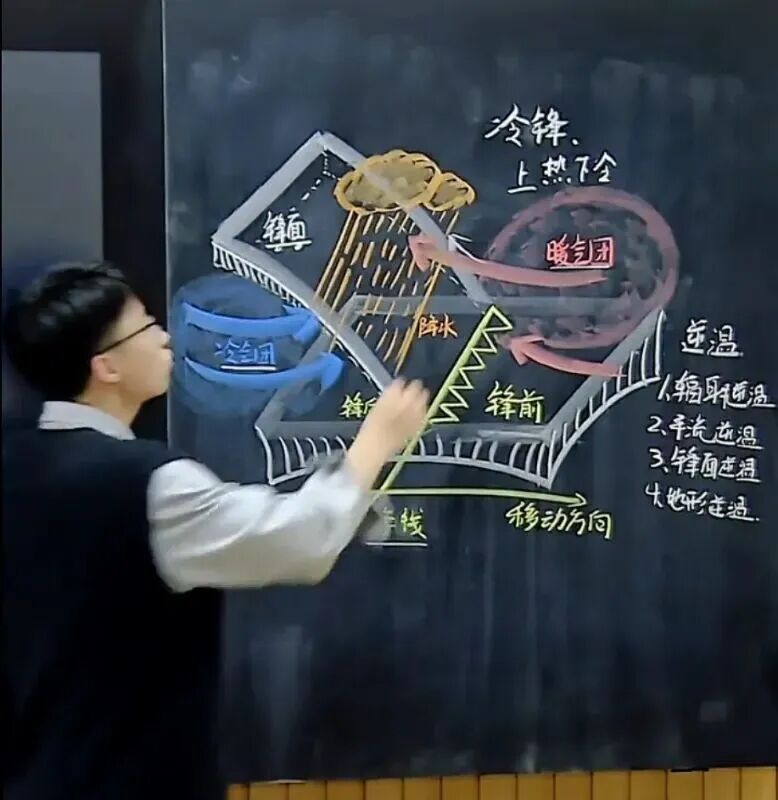 冷锋、
上热下冷
锋面
暖气团
冷气团
降水
锋
锋前
移动方向
线
逆温
1.辐射逆温
2.平流逆温
3.锋面逆温
4.地形逆温